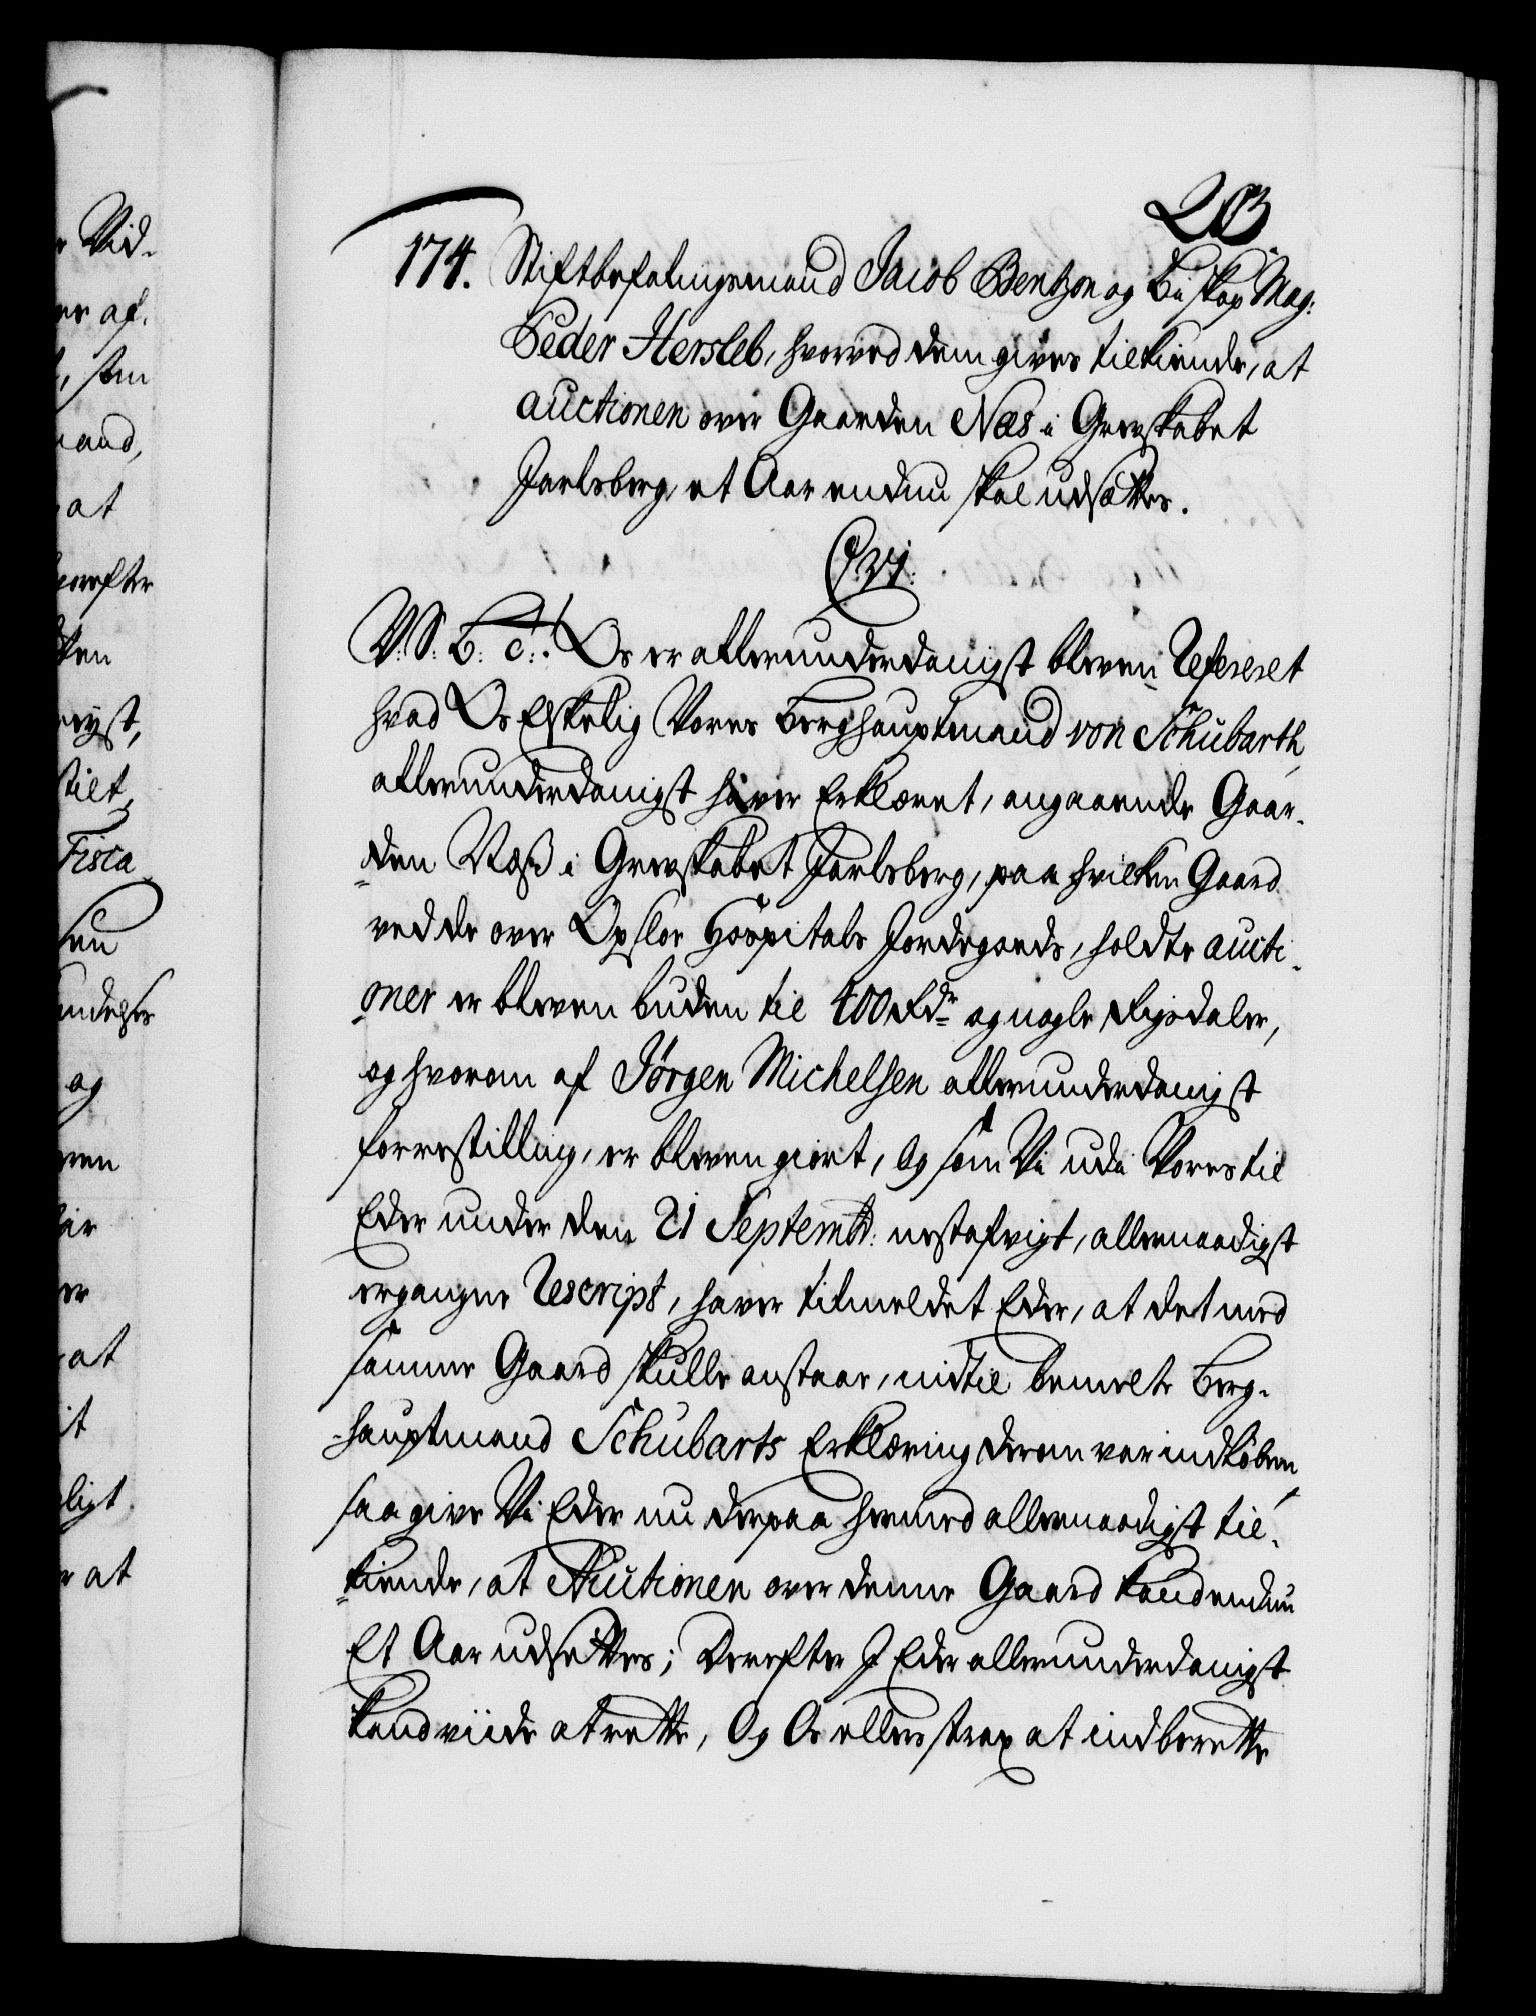 203
174. Stiftbefalingsmand Jacob Bentzon og Biskop Mag:
Peder Hersleb, hvorved dem gives tilkiende, at
auctionen over Gaarden Næs i Grevskabet
Jarlsberg, et Aar endnu skal udsættes.
C. VI.
V: S: G: T:. Os er allerunderdanigst bleven Refereret
hvad Os Elskelig Vores Berghauptmand von Schubarth,
allerunderdanigst haver Erklæret, angaaende Gaar-
den Næss i Grevskabet Jarlsberg, paa hvilken Gaard
ved de over Opsloe Hospitals Jordegods, holdte aucti-
oner er bleven buden til 400 Rdr og nogle Rigsdaler,
og hvorom af Jörgen Michelsen allerunderdanigst
forrestilling, er bleven giort, Og som Vi udi Vores til
Eder under den 21 Septembr: nestafvigt, allernaadigst
ergangne Rescript, haver tilmeldet Eder, at det med
samme Gaard skulle anstaae, indtil bemelte Berg-
hauptmand Schubarts Erklæring derom var indkommen,
saa give Vi Eder nu derpaa hermed allernaadigst til-
kiende, at Auctionen over denne Gaard kand endnu
Et Aar udsættes; Derefter I Eder allerunderdanigst
kand viide at rette, Og Os ellers strax at indberette
Vid-
er af.
, som
mand,
at
vorefter
ken
ryst,
tilt
Fisca
sen
og
at
it
ligt
at